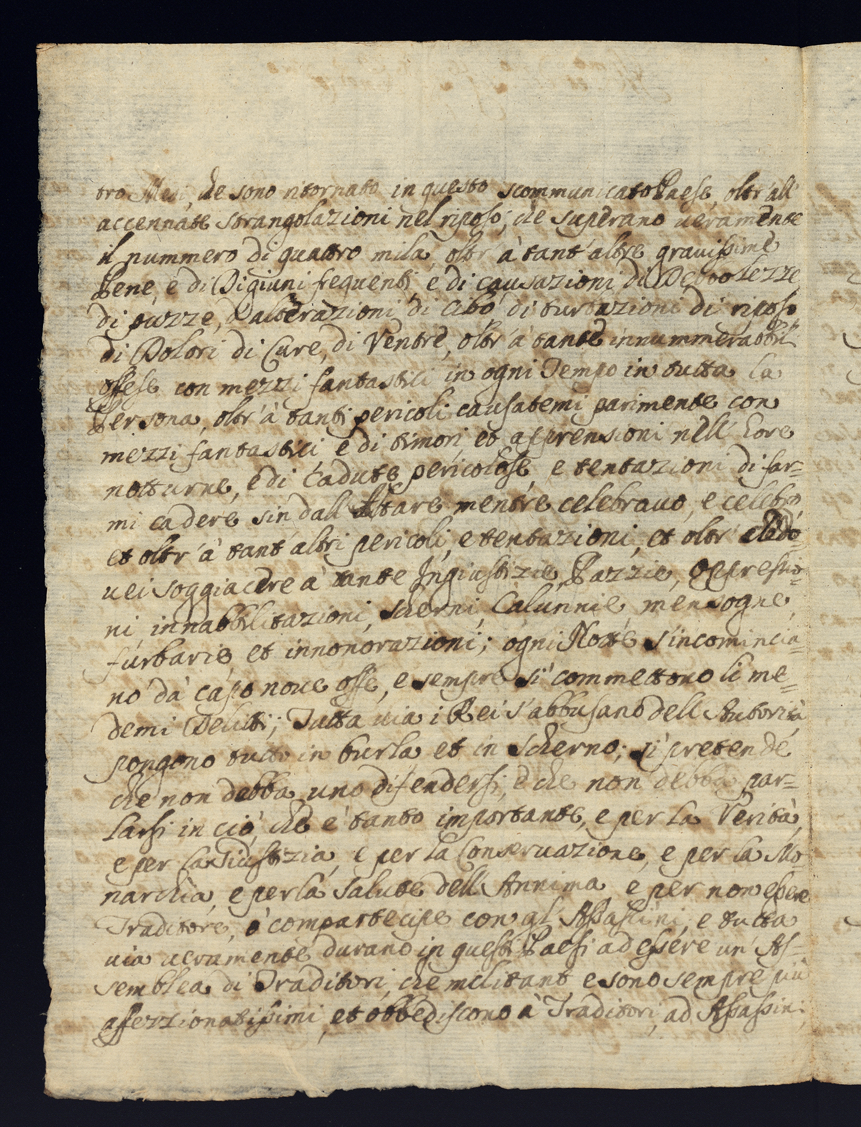 tro Mesi, che sono ritornato in questo scommunicato Paese, oltr'all'
accennate strangolazioni nel riposo, che superano veramente
il nummero di quattro mila, oltr'à tant'altre gravissime
Pene, e di Digiuni frequenti e di causazioni di Debolezze
di puzze, d'alterazioni di cibo, di turbazioni di riposo
di Dolori di Cure, di Ventre, oltr'a tante innummerabili
offese con mezzi fantastici in ogni Tempo in tutta la
Persona, oltr'à tanti pericoli causatemi parimente con
mezzi fantastici e di timori et apprensioni nell'hore
notturne, e di Cadute pericolose e tentazioni di far=
mi cadere sin dall'Altare mentre celebravo, e celebro
et oltr'à tant'altri pericoli, e tentazioni, et oltr'
vei soggiacere a tante Ingiustizie, Pazzie, Oppressio=
ni innabbilitazioni, scherni, Calunnie, mensogne,
furbarie et innonorazioni; ogni Notte s'incomincia=
no da capo nove offese, e sempre si commettono li me=
demi Delitti; Tutta via i Rei s'abbusano dell'Autorità
pongono tutto in burla et in scherno; si pretende
che non debba uno difendersi, e che non debba par=
larsi in ciò che e' tanto importante, e per la Verità,
e per la Giustizia, e per la Conservazione, e per la Mo=
narchia, e per la salute dell'Annima, e per non essere
Traditore, ò compartecipe con gl'Assassini, e tutta
via veramente durano in questi Paesi ad essere un'As=
semblea di Traditori, che militano e sono sempre più
affezzionatissimi, et obbediscono à Traditori, ad Assassini,